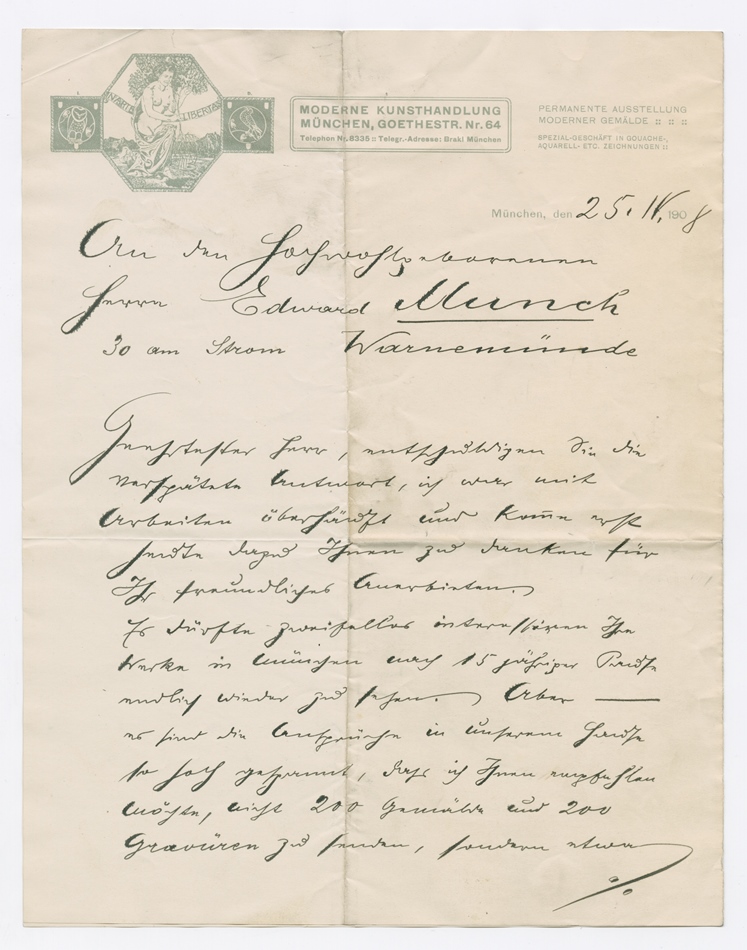 IN ARTE LIBERTAS
MODERNE KUNSTHANDLUNG
MÜNCHEN, GOETHESTR. Nr. 64
Telephon Nr. 8335 :: Telegr.-Adresse: Brakl München
PERMANENTE AUSSTELLUNG
MODERNER GEMÄLDE :: :: ::
SPEZIAL-GESCHÄFT IN GOUACHE-,
AQUARELL- ETC. ZEICHNUNGEN ::
München, den 25. IV. 1908
An den Hochwohlgeborenen
Herrn Edward Munch
30 am Strom Warnemünde
Geehrtester Herr, entschuldigen Sie die
verspätete Antwort, ich war mit
Arbeiten überhäuft und kom̅e erst
heute dazu Ihnen zu danken für
Ihr freundliches Anerbieten.
Es dürfte zweifellos interessiren Ihre
Werke in München nach 15 jähriger Pause
endlich wieder zu sehen. Aber —
es sind die Ansprüche in unserem Hause
so hoch gespannt, dass ich Ihnen empfehlen
möchte, nicht 200 Gemälde und 200
Gravüren zu senden, sondern etwa
./.